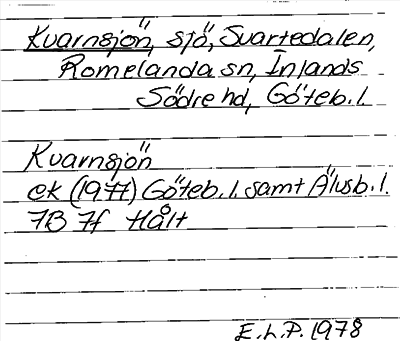 Kvarnsjön, sjö, Svartedalen,
Romelanda sn, Inlands
Södre hd, Göteb. l.
Kvarnsjön
ek (1977) Göteb. l. samt Älvsb. l.
7B 7f Hålt
E.L.P. 1978